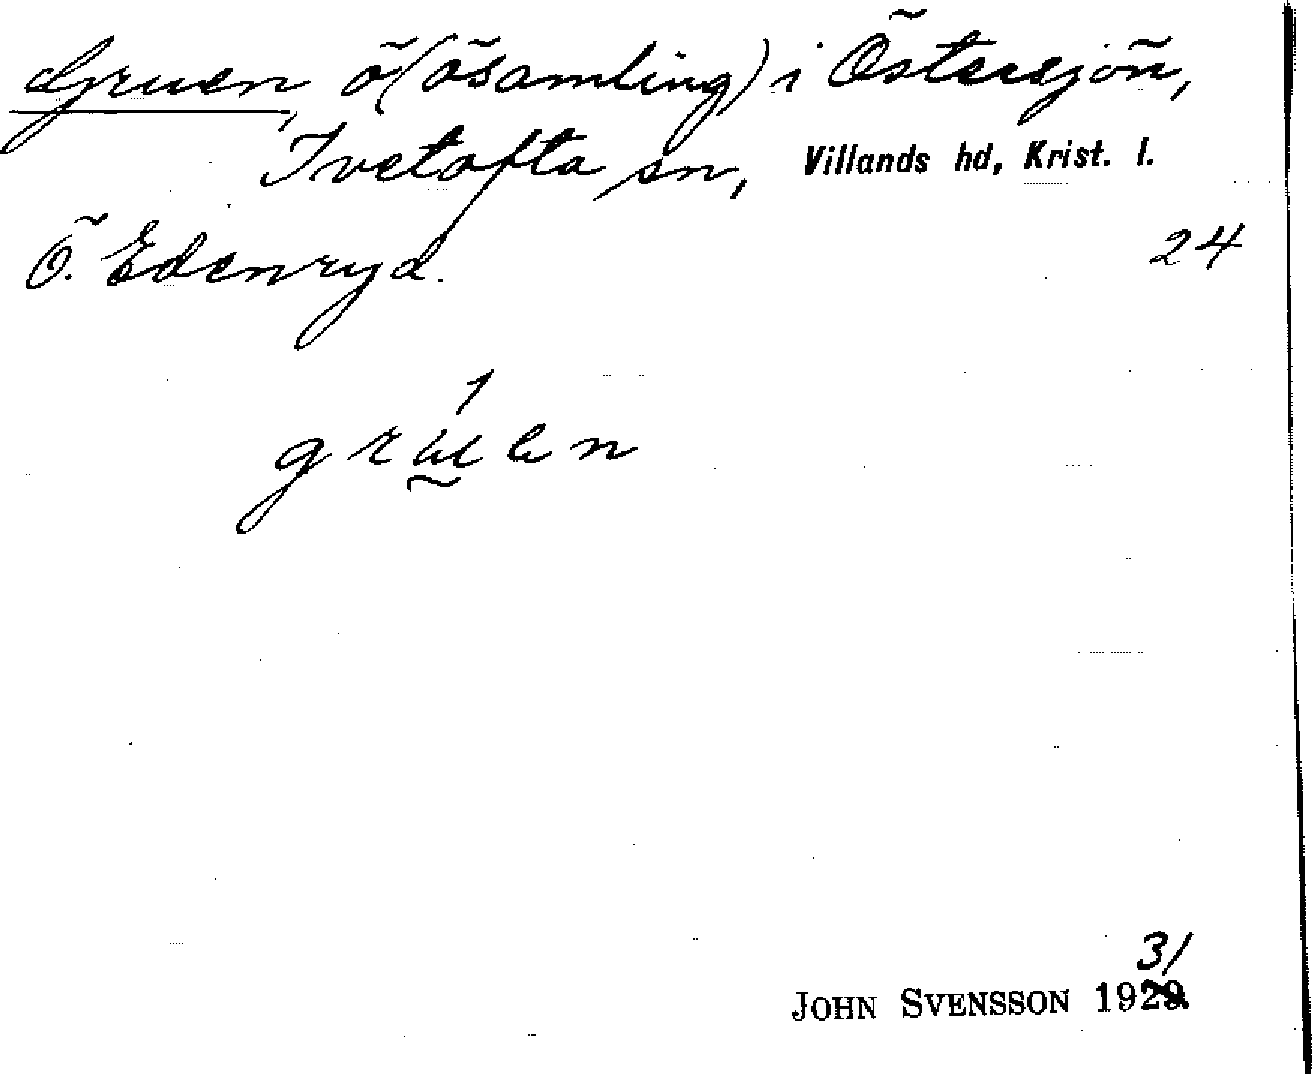 Gruen, ö (ösamling) i Östersjön,
Ivetofta sn, Villands hd, Krist. l.
Ö. Edenryd. 24
JOHN SVENSSON 1931